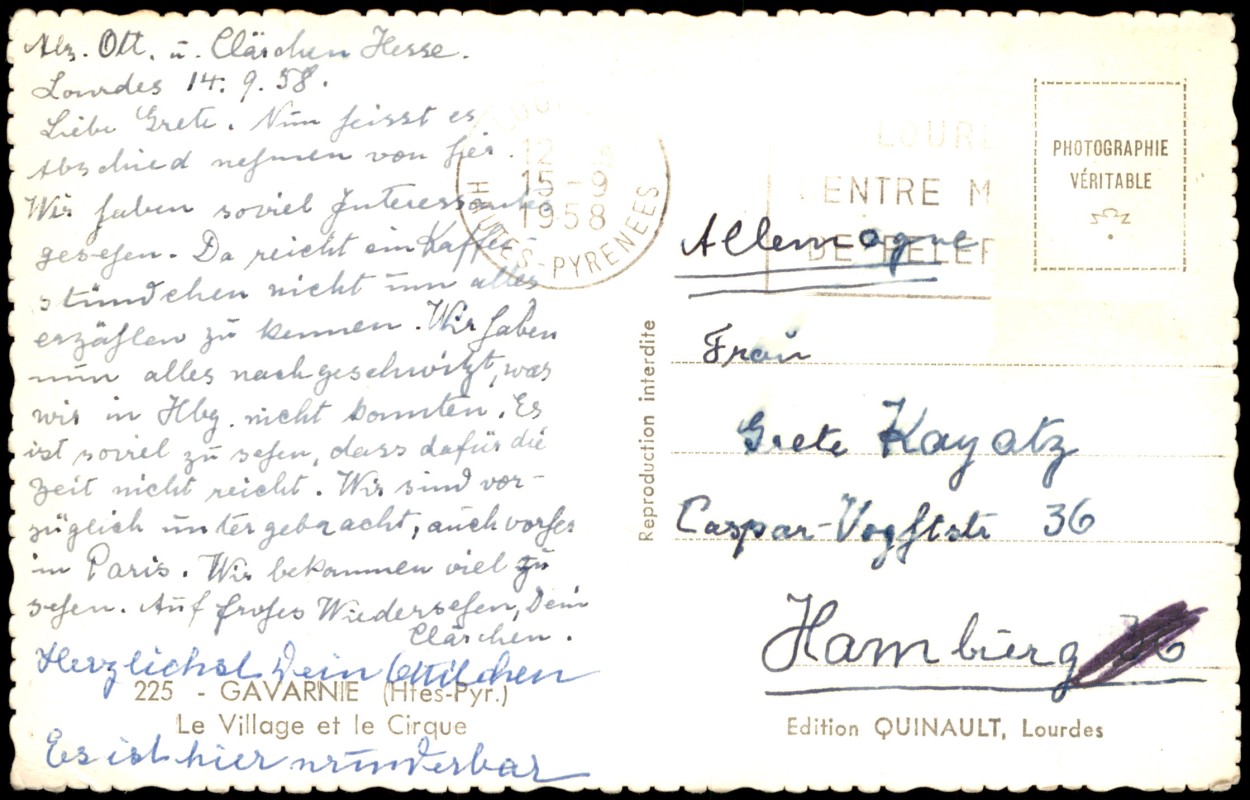 Abs. Ott. u. Clärchen Hesse.
Lourdes 14. 9. 58.
Liebe Grete. Nun heisst es
Abschied nehmen von hier.
Wir haben soviel Interessantes
gesehen. Da reicht ein Kaffee-
stündchen nicht um alles
erzählen zu kennen. Wir haben
nun alles nachgeschwitzt, was
wir in Hbg. nicht konnten. Es
ist soviel zu sehen, dass dafür die
Zeit nicht reicht. Wir sind vor-
züglich untergebracht, auch vorhes
in Paris. Wir bekommen viel zu
sehen. Auf frohes Wiedersehen, Dein
Clärchen.
Herzlichst Dein Ottilchen
225 - GAVARNIE (Htes-Pyr.)
Le Village et le Cirque
Es ist hier wunderbar
12
15 - 9
1958
HAUTES-PYRENEES
LOURD
CENTRE M
DE PELER
PHOTOGRAPHIE
VÉRITABLE
Allemagne
Reproduction interdite
Frau
Grete Kayatz
Caspar-Voghtstr 36
Hamburg
Edition QUINAULT, Lourdes